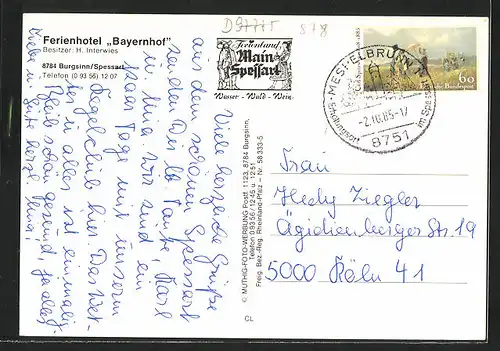 Ferienhotel „Bayernhof“
Besitzer: H. Interwies
8784 Burgsinn/Spessart
Telefon (0 93 56) 12 07
878
Ferienland
Main
Spessart
Wasser - Wald - Wein
MESPELBRUNN
-2.10.85-17
8751
Erholungsort im Spessart
60
Viele herzliche Grüße
aus dem schönen Spessart
senden Dir
Tante, Karl
wir sind ein
paar Tage mit unserem
Kegelclub hier. Das Wet-
ter u. alles ist einmalig.
Bleib schön gesund,
Liebe u. Gute
© MUTHIG-FOTO-WERBUNG Postf. 1123, 8784 Burgsinn,
Telefon 0 93 56/12 45 u. 12 51
Freig. Bez.-Reg. Rheinland-Pfalz – Nr. 58 333-5
CL
Frau
Hedy Ziegler
Ägidienberger Str. 19
5000 Köln 41